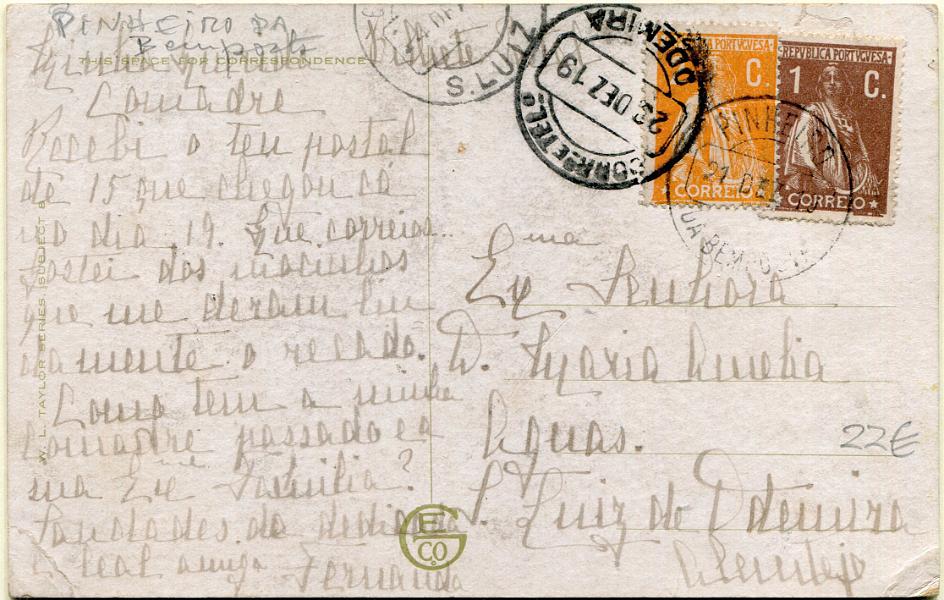 PINHEIRO DA
Bemposta
THIS SPACE FOR CORRESPONDENCE
Minha querida
Comadre
Recebi o teu postal
de 15 que chegou cá
no dia 19. Que correio.
Gostei dos mocinhos
que me deram lin
damente o recado.
Como tem a minha
Comadre passado e a
sua Exma Familia?
Saudades da dedicada
e leal amiga Fernanda
W. L. TAYLOR SERIES. (SUBJECT 8)
EG
CO.
S. LUIZ
CORR.E TEL.
23 DEZ 19
ODEMIRA
REPUBLICA PORTUGUESA
C.
CORREIO
REPUBLICA PORTUGUESA
1 C.
CORREIO
PINHEIRO
21 DEZ 19
DA BEMPOSTA
Exma Senhora
D. Maria Amelia
Aguas.
S. Luiz de Odemira
Alemtejo
22€